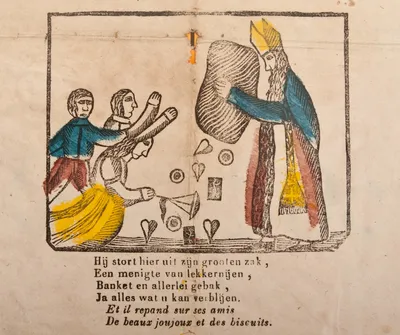 Hij stort hier uit zijn grooten zak,
Een menigte van lekkernijen,
Banket en allerlei gebak,
Ja alles wat u kan verblijen.
Et il repand sur ses amis
De beaux joujoux et des biscuits.